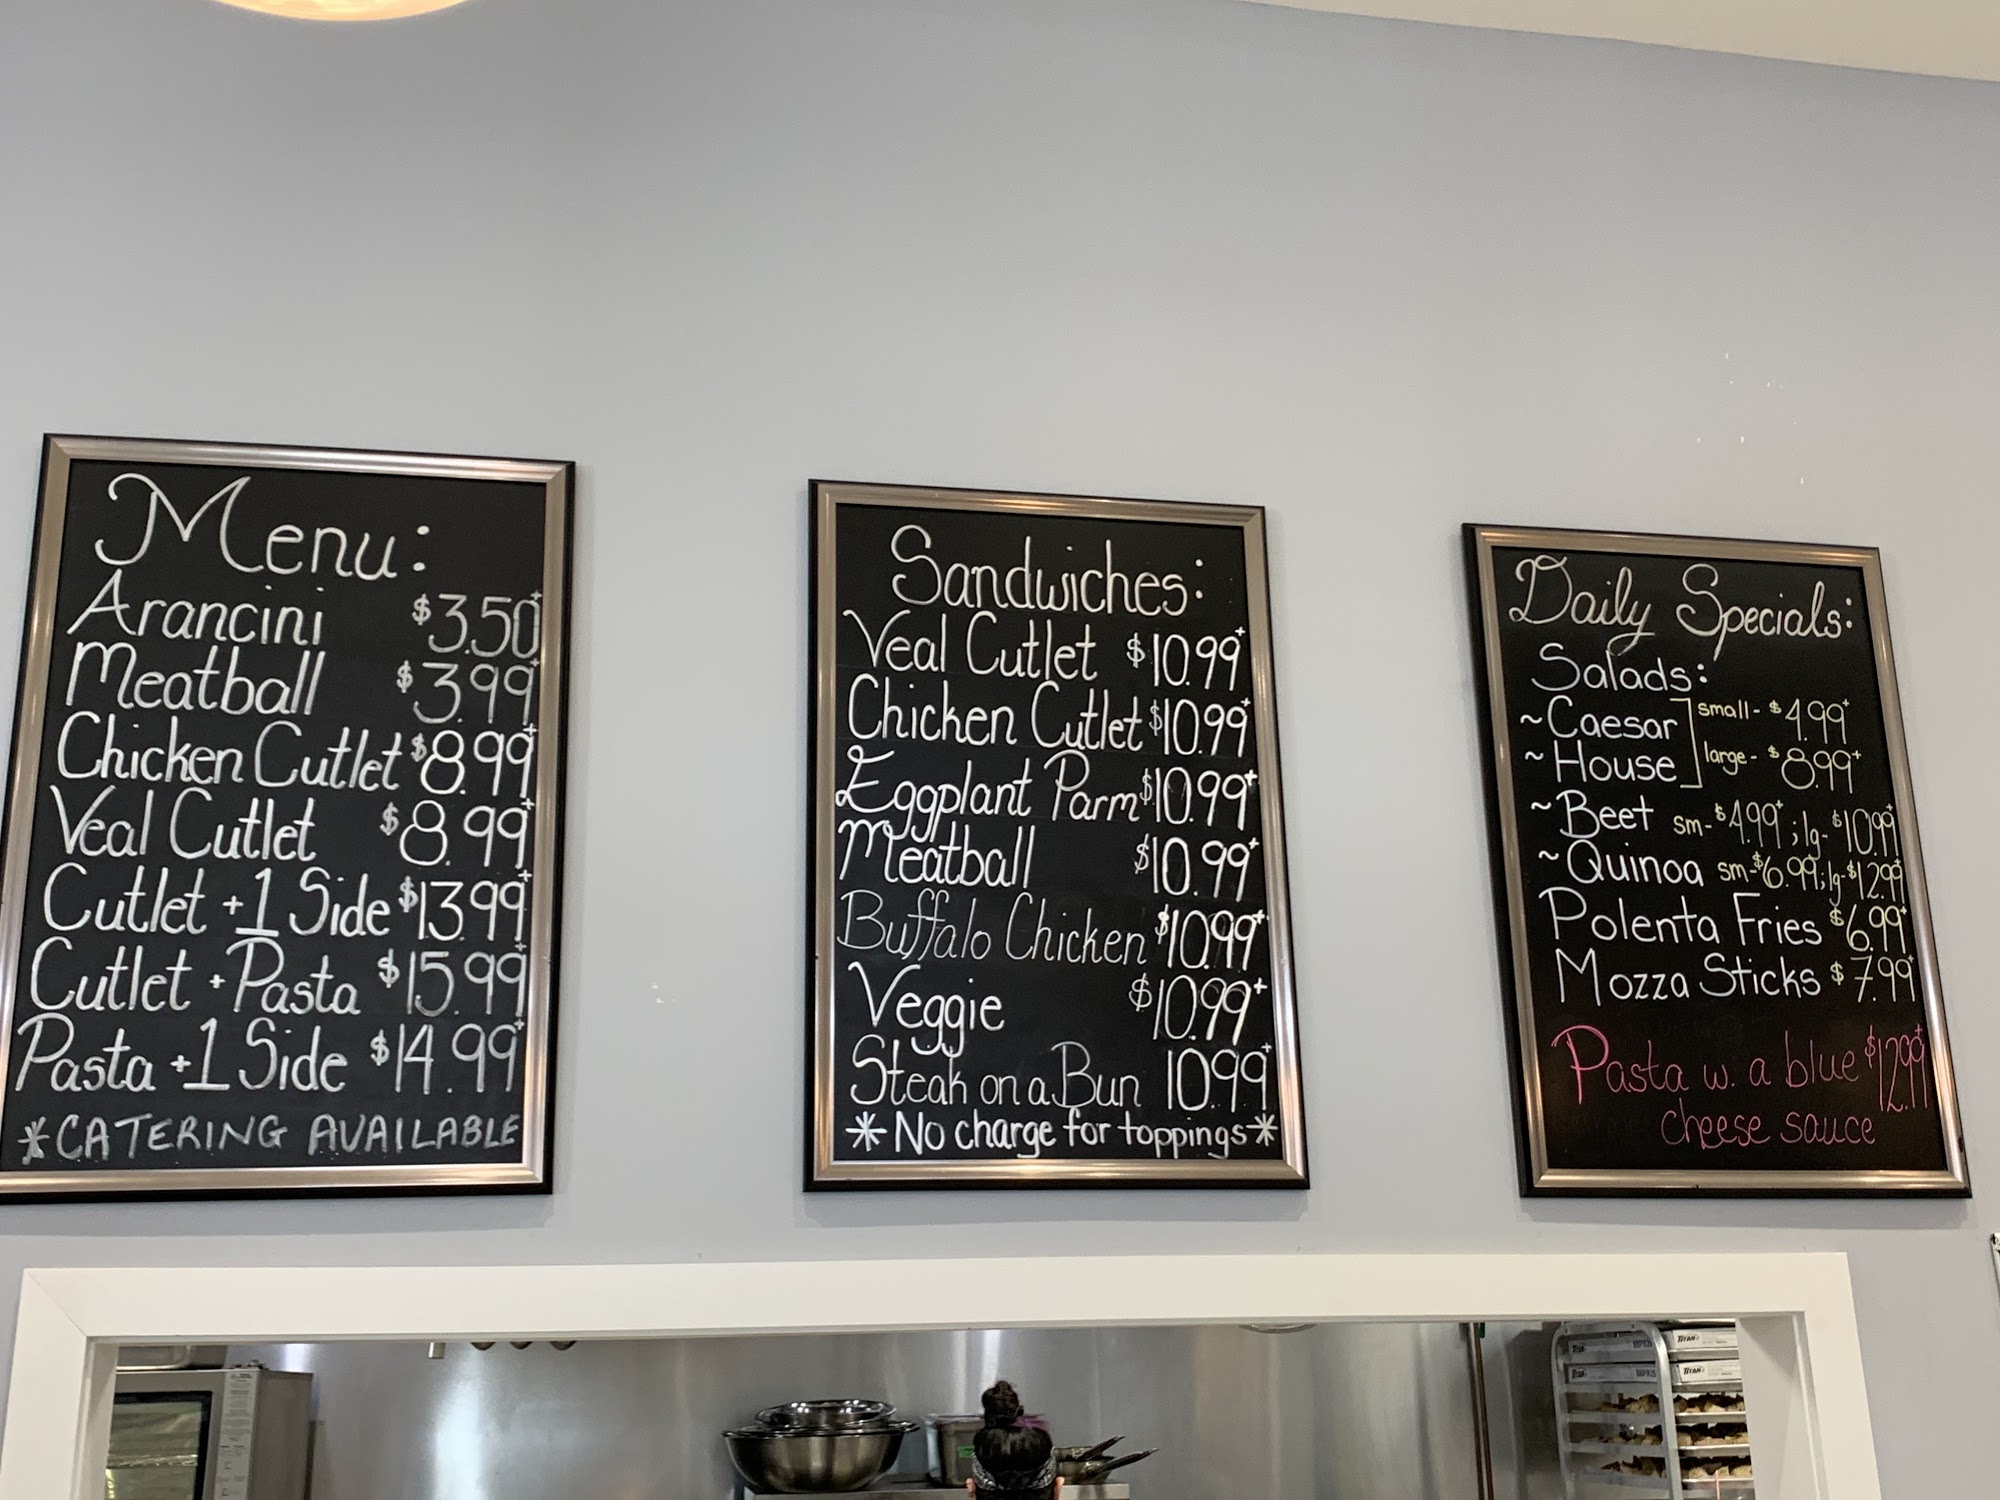 Menu:
Arancini $3.50+
Meatball $3.99+
Chicken Cutlet $8.99+
Veal Cutlet $8.99+
Cutlet +1 Side $13.99+
Cutlet + Pasta $15.99+
Pasta +1 Side $14.99+
*CATERING AVAILABLE
Sandwiches:
Veal Cutlet $10.99+
Chicken Cutlet $10.99+
Eggplant Parm $10.99+
Meatball $10.99+
Buffalo Chicken $10.99+
Veggie $10.99+
Steak on a Bun 10.99+
* No charge for toppings *
Daily Specials:
Salads:
~Caesar ] small- $4.99+
~House ] large- $8.99+
~Beet sm-$4.99+; lg-$10.99+
~Quinoa sm-$6.99; lg-$12.99+
Polenta Fries $6.99+
Mozza Sticks $7.99+
Pasta w. a blue $12.99+
cheese sauce
TITAN
TITAN
TITAN
TITAN